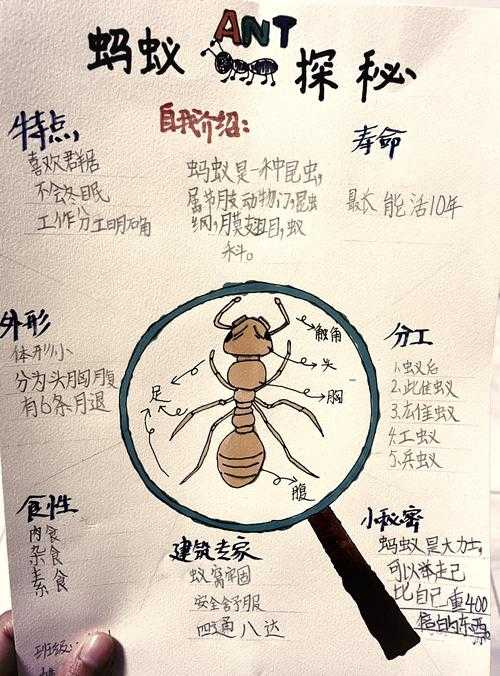 蚂蚁 ANT 探秘
特点
喜欢群居
不会冬眠
工作分工明确
自我介绍:
蚂蚁是一种昆虫,
属节肢动物门,昆虫
纲,膜翅目,蚁
科。
寿命
最长能活10年
外形
体形小
分为头胸腹
有6条月退
触角
头
胸
足
腹
分工
1.蚁后
2.雌蚁
3.雄蚁
4.工蚁
5.兵蚁
食性
肉食
杂食
素食
建筑专家
蚁窝牢固
安全舒服
四通八达
小秘密
蚂蚁是大力士,
可以举走己
比自己重400
倍的东西。
班级: